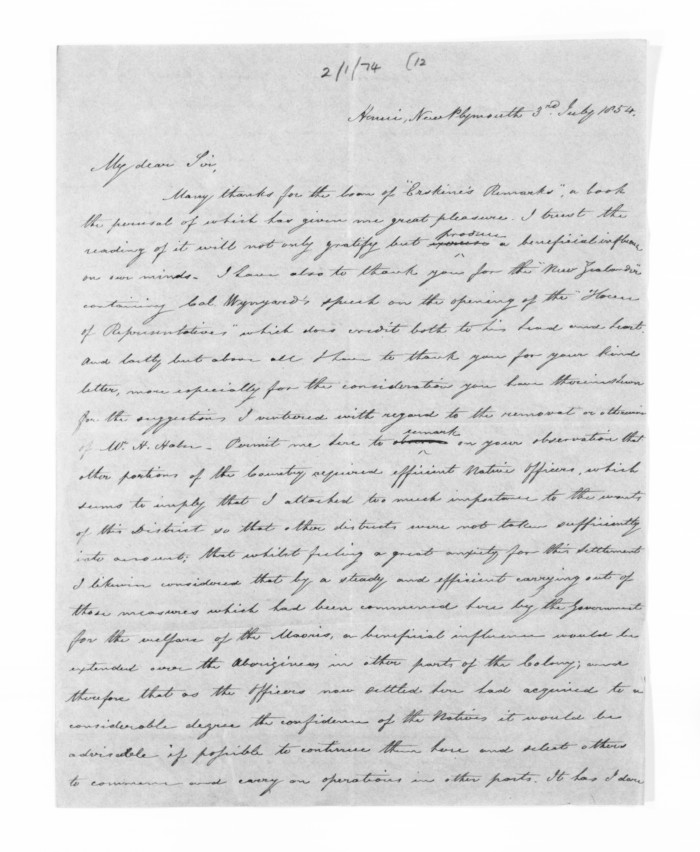 2/1/74 (12
Henui, New Plymouth 3rd July 1854.
My dear Sir,
Many thanks for the loan of "Erskine's Remarks", a book
the perusal of which has given me great pleasure. I trust the
reading of it will not only gratify but produce a beneficial influence
on our minds. I have also to thank you for the "New Zealander"
containing Col. Wynyard's speech on the opening of the "House
of Representatives" which does credit both to his head and heart
And lastly but above all I have to thank you for your kind
letter, more especially for the consideration you have therein shewn
for the suggestions I ventured with regard to the removal or otherwise
of Mr. H. Halse - Permit me here to remark on your observation that
other portions of the Country required efficient Native Officers, which
seems to imply that I attached too much importance to the wants
of this District so that other districts were not taken sufficiently
into account; that whilst feeling a great anxiety for this Settlement
I likewise considered that by a steady and efficient carrying out of
those measures which had been commenced here by the Government
for the welfare of the Maoris, a beneficial influence would be
extended over the Aborigines in other parts of the Colony; and
therefore that as the Officers now settled here had acquired to a
considerable degree the confidence of the Natives it would be
advisable if possible to continue them here and select others
to commence and carry on operations in other parts. It has I dare